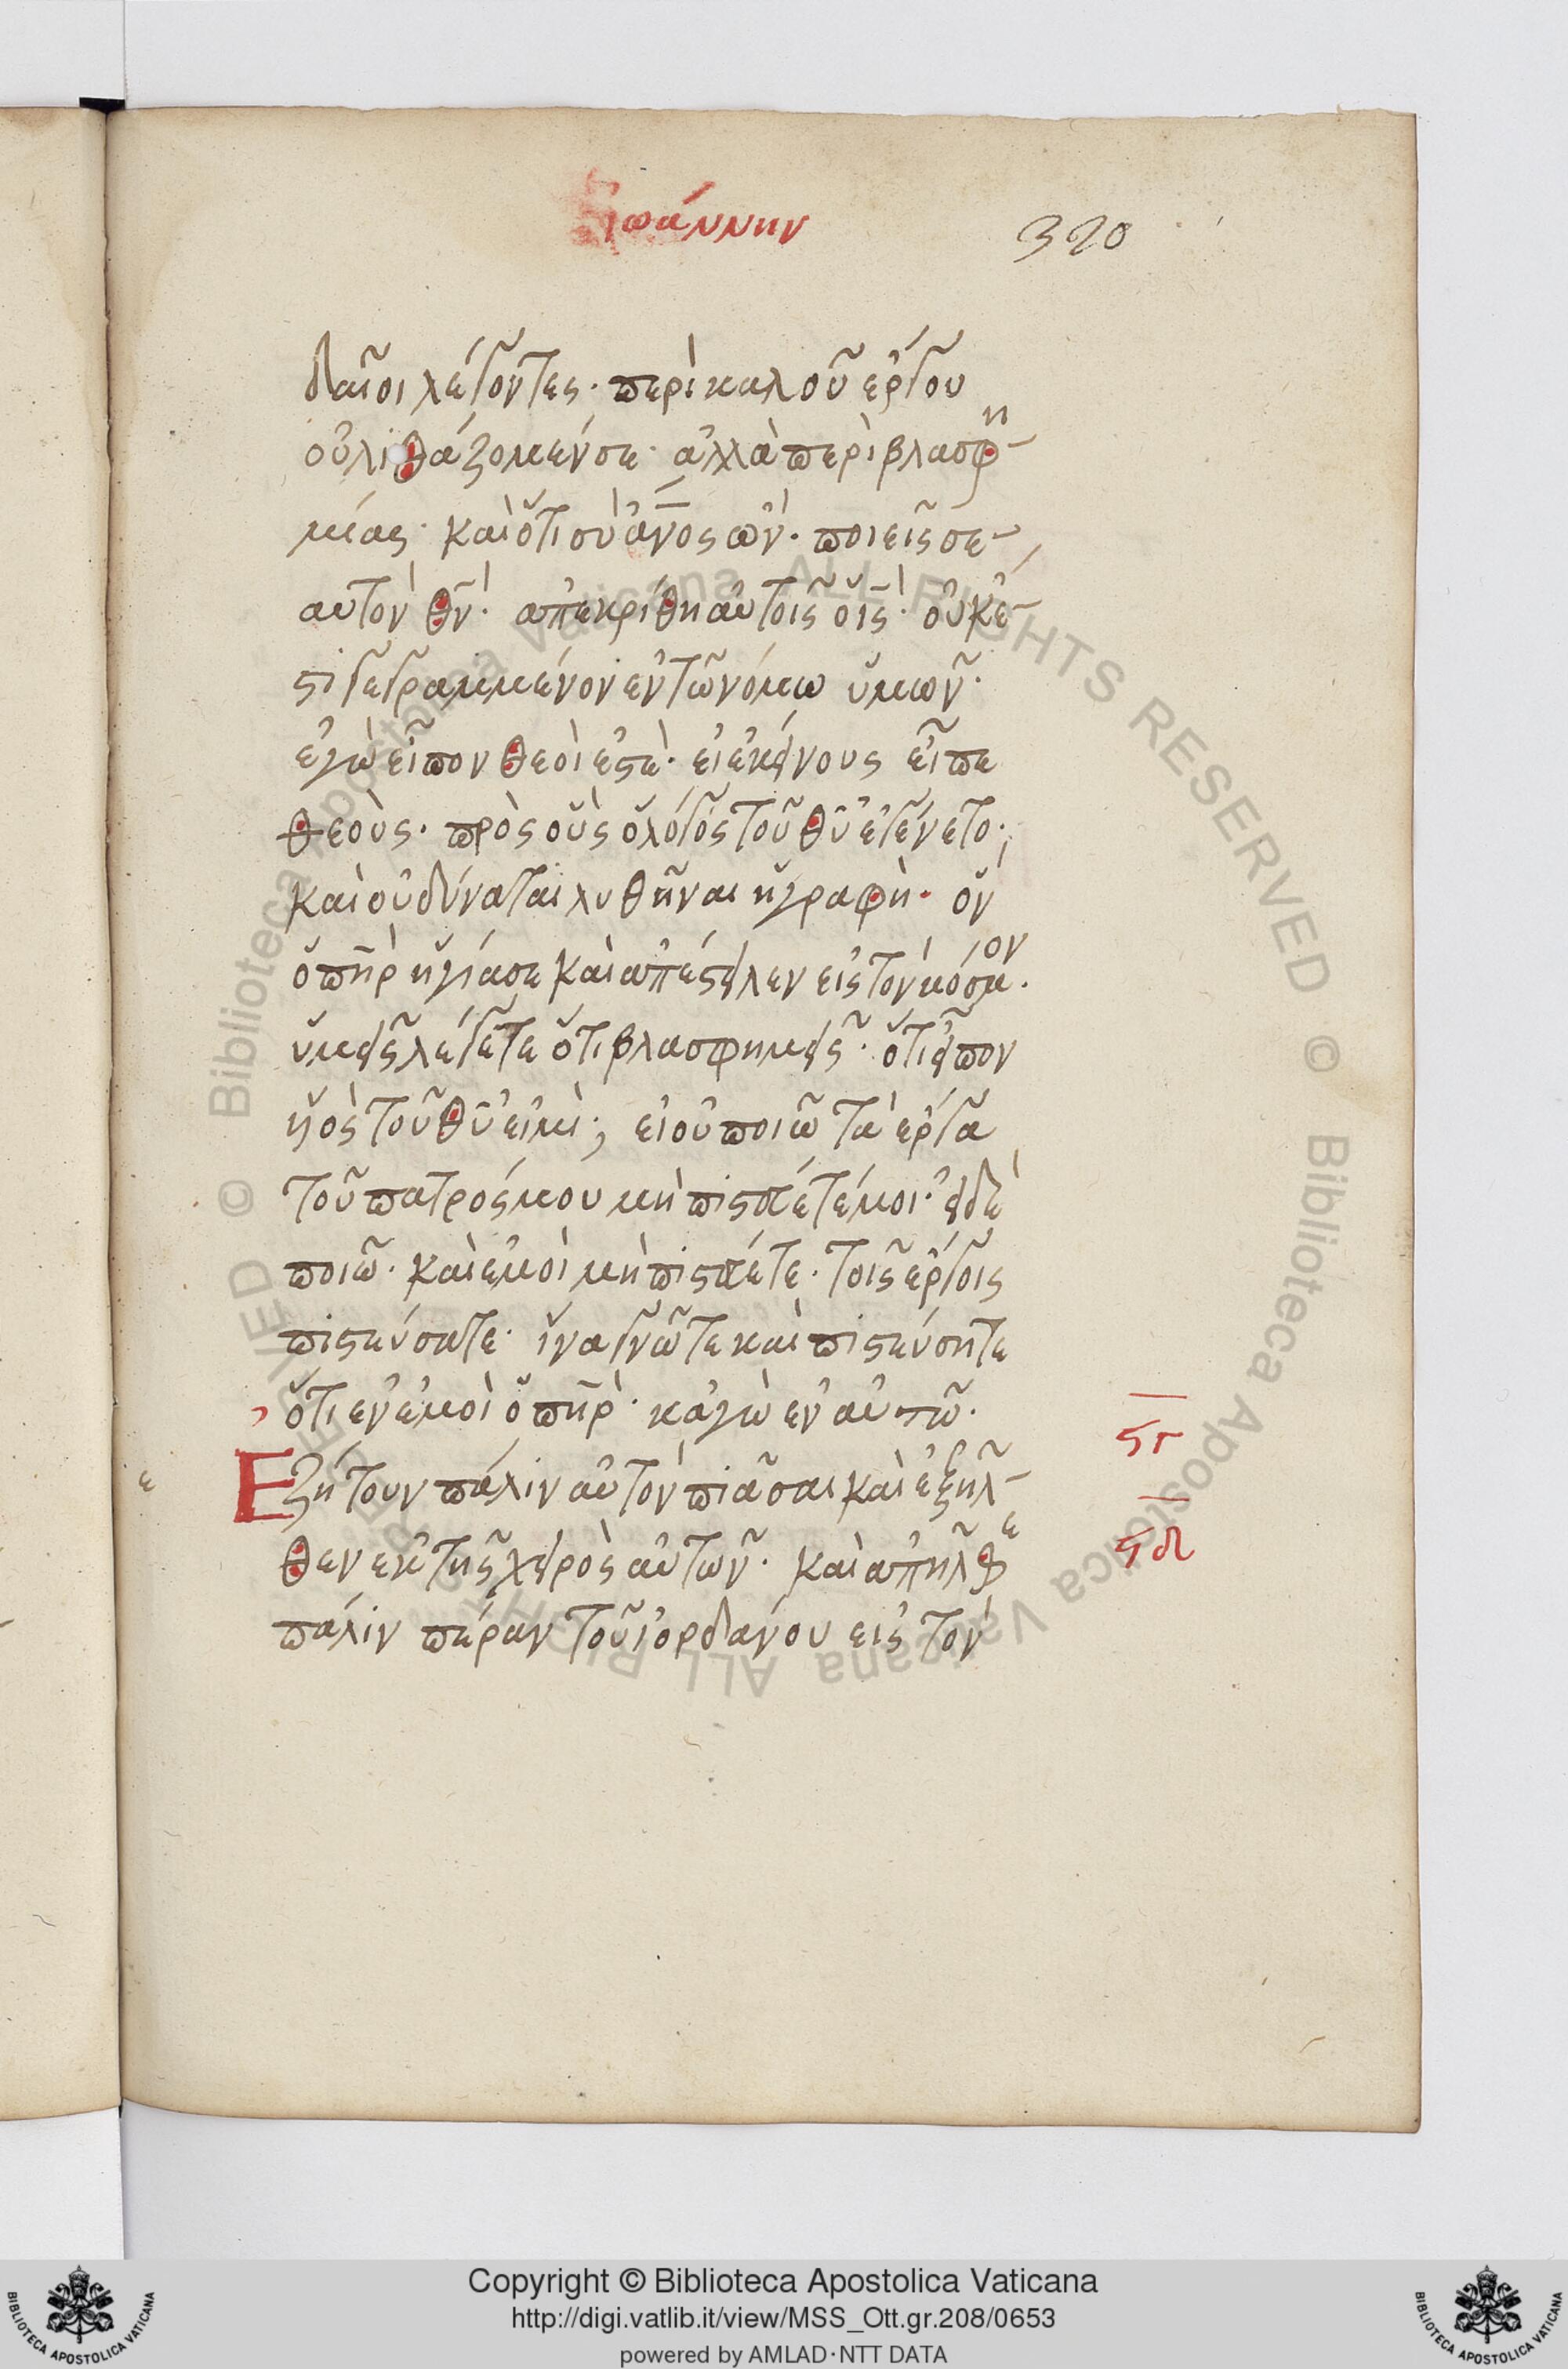 ἰωάννην
320
δαῖοι λέγοντες· περὶ καλοῦ ἔργου
οὐ λιθάζομέν σε· ἀλλὰ περὶ βλασφη-
μίας· καὶ ὅτι σὺ ἄνος ὢν· ποιεῖς σε-
αυτὸν θν· ἀπεκρίθη αὐτοῖς ὁ ις· οὐκ ἔ-
στι γεγραμμένον ἐν τῶ νόμω ὑμῶν·
ἐγὼ εἶπον θεοὶ ἐστὲ· εἰ ἐκείνους εἶπε
θεοὺς· πρὸς οὓς ὁ λόγος τοῦ θυ ἐγένετο·
καὶ οὐ δύναται λυθῆναι ἡ γραφὴ· ὃν
ὁ πηρ ἡγίασε καὶ ἀπέστειλεν εἰς τὸν κόσμον·
ὑμεῖς λέγετε ὅτι βλασφημεῖς· ὅτι εἶπον
υἱὸς τοῦ θυ εἰμὶ; εἰ οὐ ποιῶ τὰ ἔργα
τοῦ πατρός μου μὴ πιστεύετέ μοι· εἰ δὲ
ποιῶ· καὶ ἐμοὶ μὴ πιστεύετε· τοῖς ἔργοις
πιστεύσατε· ἵνα γνῶτε καὶ πιστεύσητε
ὅτι ἐν ἐμοὶ ὁ πηρ· κἀγὼ ἐν αὐτῶ·
ϛγ
Ἐζήτουν πάλιν αὐτὸν πιᾶσαι καὶ ἐξῆλ-
ϛδ
θεν ἐκ τῆς χειρὸς αὐτῶν· καὶ ἀπῆλθε
πάλιν πέραν τοῦ ἰορδάνου εἰς τὸν
© Biblioteca Apostolica Vaticana ALL RIGHTS RESERVED © Biblioteca Apostolica Vaticana ALL RIGHTS RESERVED
Copyright © Biblioteca Apostolica Vaticana
http://digi.vatlib.it/view/MSS_Ott.gr.208/0653
powered by AMLAD·NTT DATA
BIBLIOTECA APOSTOLICA VATICANA
BIBLIOTECA APOSTOLICA VATICANA